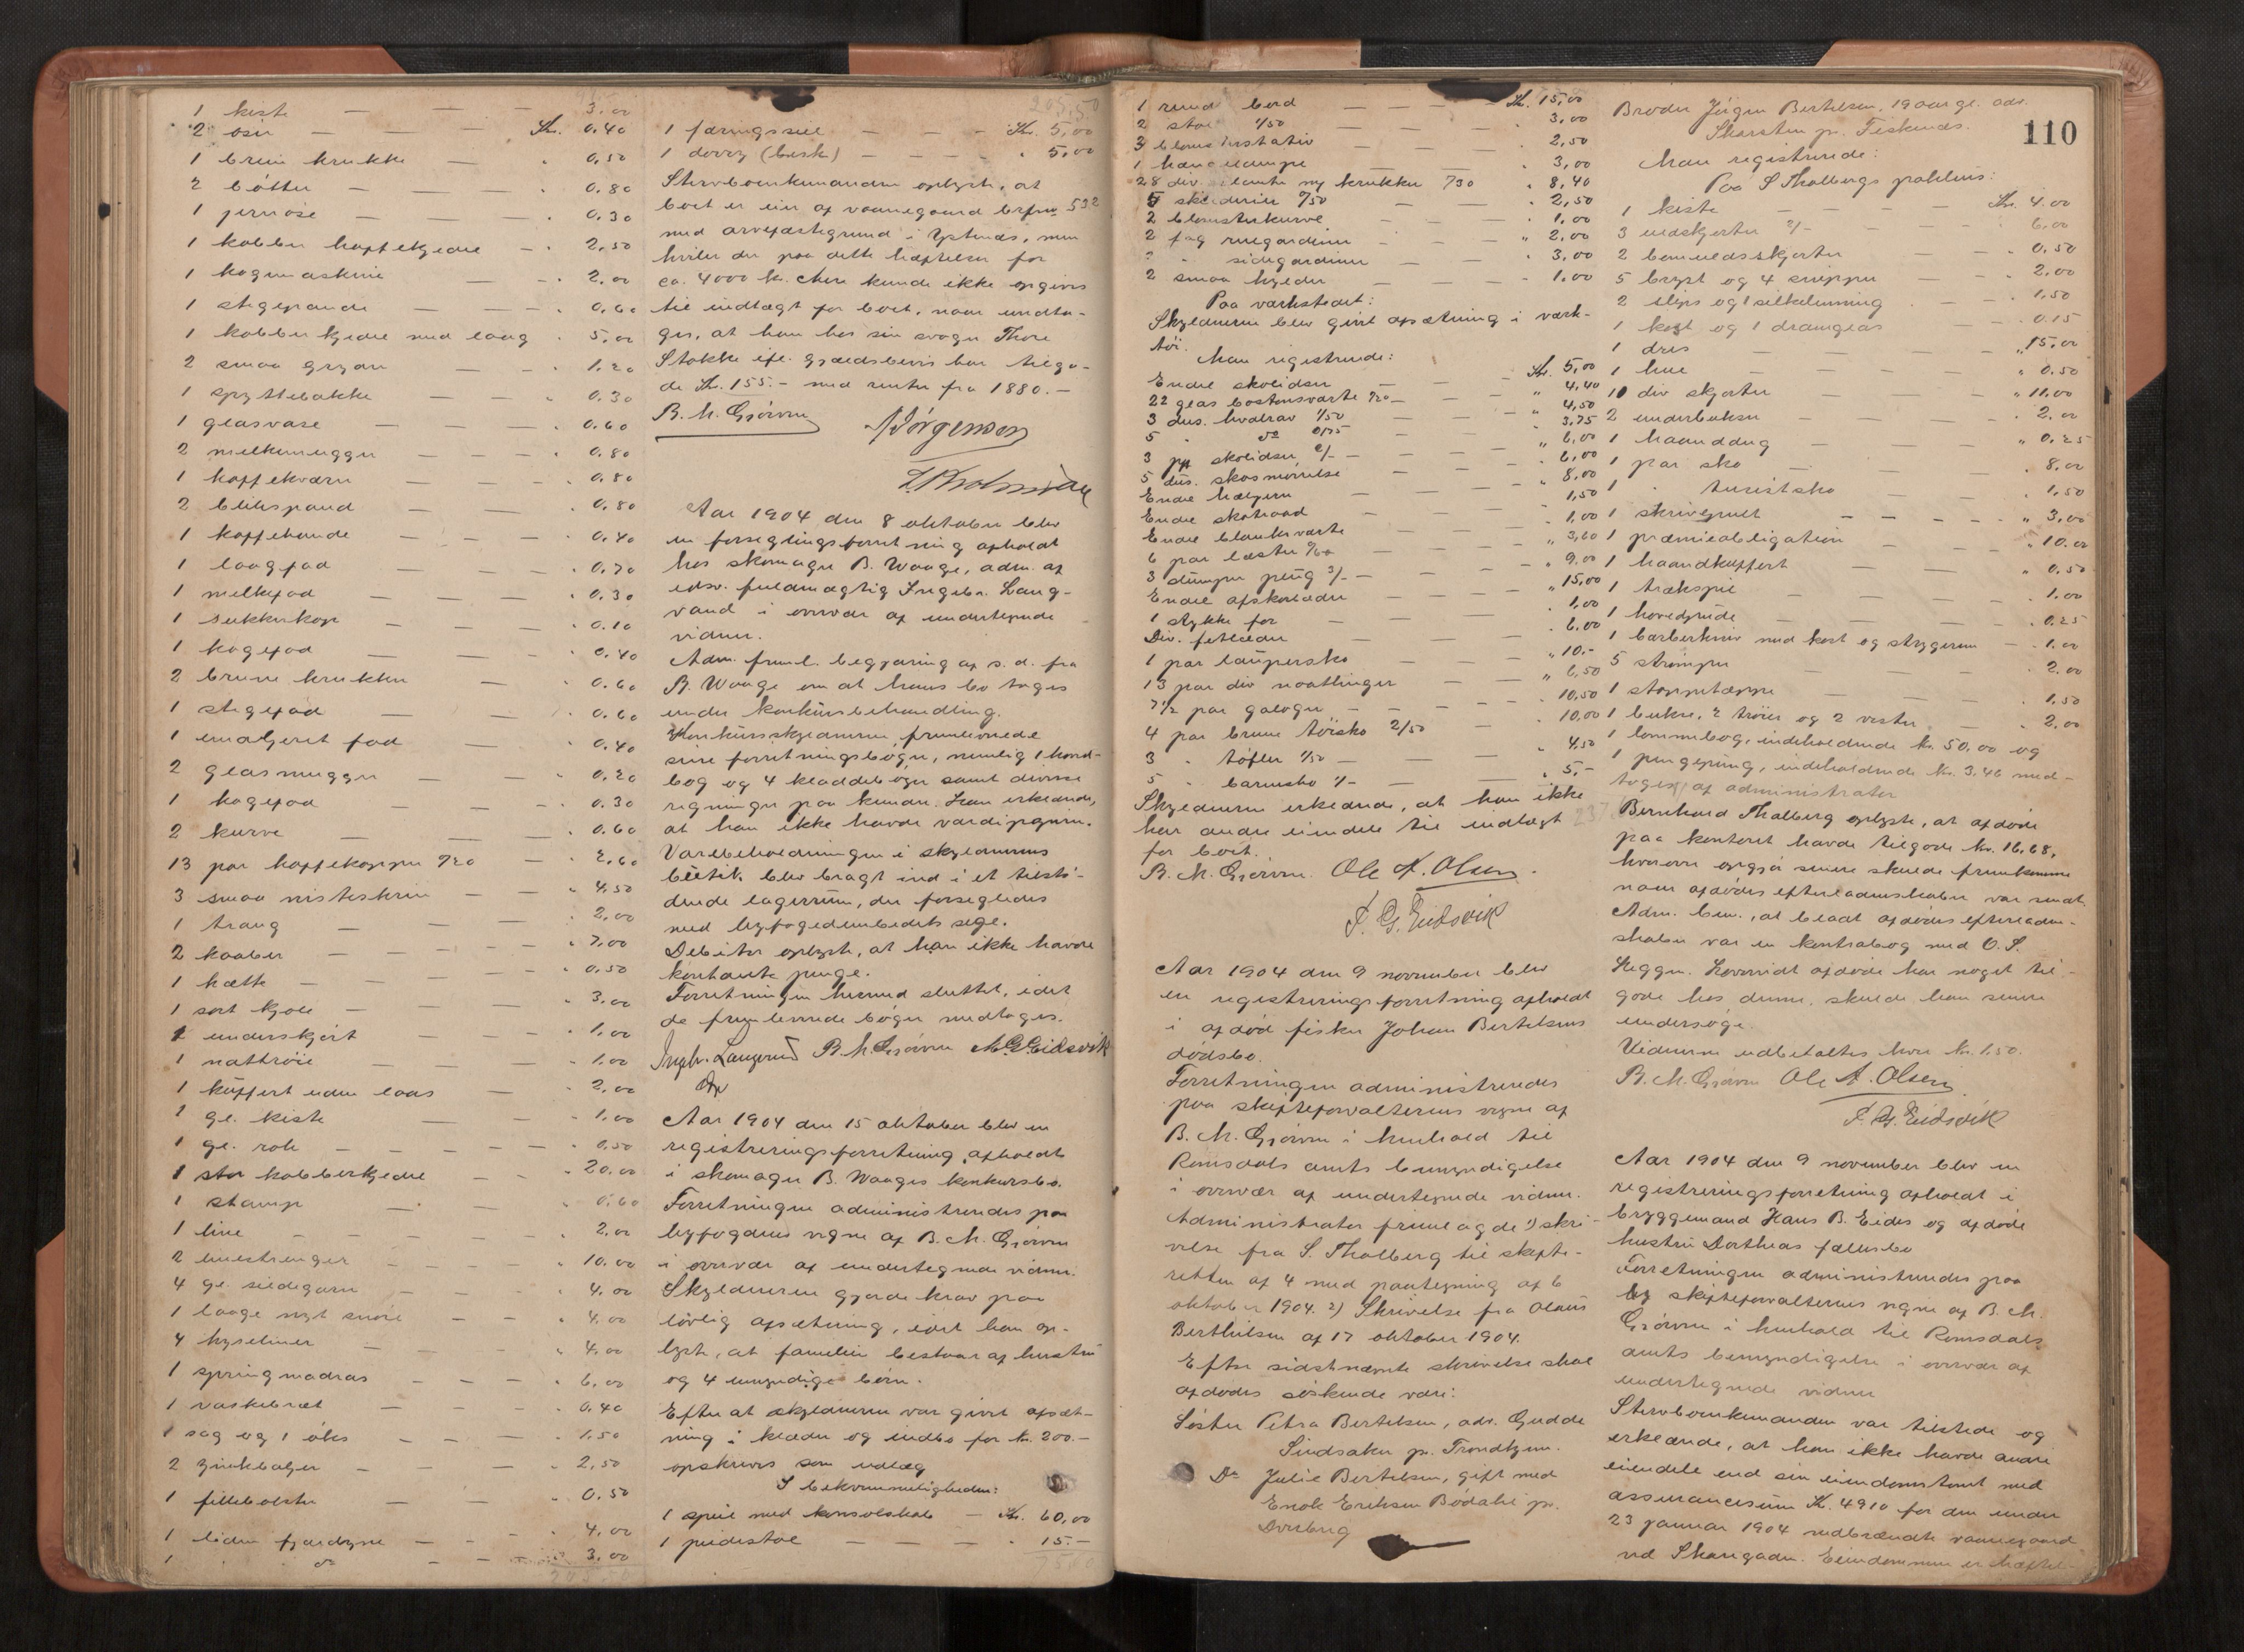 1 kiste — — — 3.00
2 øser — — — Kr. 0.40
1 brun krukke — " 0,50
2 bøtter — — " 0.80
1 jernøse — — " 0.30
1 kobber kaffekjedel — " 2,50
1 kogemaskine — — 2,00
1 stegepande — — 0,60
1 kobberkjedel med laag " 5,00
2 smaa gryder — — " 1.20
1 spyttebakke — — " 0.30
1 glasvase — — " 0.60
2 melkemugger — — " 0.80
1 kaffekværn — — " 0.80
2 blikspand — — " 0.80
1 kaffekande — — " 0.40
1 laagfad — — " 0.70
1 melkefad — — " 0.30
1 sukkerkop — — " 0.10
1 kagefad — — " 0.40
2 brune krukker — " 0.60
1 stegefad — — " 0.60
1 emaljeret fad — — " 0.40
2 glasmugger — — " 0.20
1 kagefad — — " 0.30
2 kurve — — " 0.60
13 par kaffekopper 0/20 — " 2.60
3 smaa nisteskrin — — " 4.50
1 traug — — " 2,00
2 kaaber — — " 7.00
1 hætte — — " 0.50
1 sort kjole — — " 3.00
1 underskjørt — — " 1.00
1 nattrøie — — " 1.00
1 kuffert uden laas — " 2.00
1 gl. kiste — — " 1.00
1 gl. rok — — " 0,50
1 stor kobberkjedel — " 20.00
1 stamp — — " 0.60
1 line — — " 2.00
2 linestrenger — — " 10.00
4 gl. sildegarn — — " 4.00
1 laage nyt snøre — — " 4.00
4 hyseliner — — " 4.00
1 springmadras — — " 6,00
1 vaskebræt — — " 0.40
1 sag og 1 øks — — " 1.50
2 zinkbaljer — — " 2,50
1 fillebolster — — " 0.50
1 liden fjærdyne — — " 4.00
1 " do — — " 3.00
205.50
1 færingsseil — — Kr. 5,00
1 dorry (besk) — — " 5.00
Stervboenkemanden oplyste, at
boet er eier af vaanegaard brfnr 592
med arvefæstegrund i Ytternæs, men
hviler der paa dette hæftelser for
ca. 4000 kr. Mere kunde ikke opgives
til indtægt for boet, naar undta-
ges, at han hos sin svoger Thore
Stokke ifl. gjældsbevis har tilgo-
de Kr. 155.- med renter fra 1880.-
B. M. Gjørven
Jørgensen
Aar 1904 den 8 oktober blev
en forseglingsforretning afholdt
hos skomager B. Waage, adm. af
edsv. fuldmægtig Ingebr. Lang-
vand i overvær af undertegnede
vidner.
Adm. freml. begjæring af s. d. fra
B. Waage om at hans bo toges
under konkursbehandling.
Konkursskyldneren fremleverede
sine forretningsbøger, nemlig 1 hoved-
bog og 4 kladdebøger samt diverse
regninger paa kunder. Han erklærede,
at han ikke havde værdipapirer.
Varebeholdningen i skyldnerens
butik blev bragt ind i et tilstø-
dende lagerrum, der forsegledes
med byfogedembedets segl.
Debitor oplyste, at han ikke havde
kontante penge.
Forretningen hermed sluttet, idet
de fremleverede bøger medtoges.
Ingbr. Langvand B. M. Gjørven M. G. Eidsvik
Aar 1904 den 15 oktober blev en
registreringsforretning afholdt
i skomager B. Waages konkursbo.
Forretningen administreredes paa
byfogdens vegne af B. M. Gjørven
i overvær af undertegnede vidner.
Skyldneren gjorde krav paa
lovlig afsætning, idet han op-
lyste, at familien bestaar af hustru
og 4 umyndige børn.
Efter at skyldneren var givet afsæt-
ning i klæder og indbo for kr. 200.-
opskreves som udlæg
I bekvemmeligheden:
1 speil med konsolskab — Kr. 60,00
1 pidestal — — " 15.-
1 rund bord — — Kr. 15,00
2 stol 1/50 — — " 3,00
3 blomsterstativ — — " 2,50
1 hængelampe — — " 3,00
28 div. plante og krukker 0/30 " 8,40
5 skilderier 0/50 — — " 2,50
2 blomsterkurve — — " 1,00
2 fag rulgardiner — — " 2,00
2 " sidegardiner — — " 3,00
2 smaa hylder — — " 1.00
Paa værkstedet:
Skyldneren blev givet afsætning i værk-
tøi.
Man registrerede:
Endel skolidser — — Kr. 5,00
22 glas bostonsværte 0/20 — " 4,40
3 dus. hvalrav 1/50 — " 4,50
5 " do 0/75 — " 3,75
3 pk skolidser 2/- — " 6,00
5 dus. skosmørrelse — " 6,00
Endel hælejern — — " 8,00
Endel skotraad — — " 1,50
Endel blanksværte — — " 1,00
6 par læster 0/60 — " 3,60
3 dusin pløg 3/- — " 9,00
Endel afskorlæder — — " 15,00
1 stykke for — — " 1,00
Div. fetlæder — — " 6.00
1 par laupersko — — " 10.-
13 par div naatlinger — " 6,50
7 1/2 par galoger — — " 10,50
4 par brune tøisko 2/50 — " 10,00
3 " tøfler 1/50 — — " 4,50
5 " barnesko 1/- — — " 5,-
Skyldneren erklærede, at han ikke
har andre eiendele til indtægt
for boet.
B. M. Gjørven. Ole A. Olsen.
P. G. Eidsvik
Aar 1904 den 9 november blev
en registreringsforretning afholdt
i afdød fisker Johan Bertelsens
dødsbo.
Forretningen administreredes
paa skifteforvalterens vegne af
B. M. Gjørven i henhold til
Romsdals amts bemyndigelse
i overvær af undertegnede vidner.
Administrator fremlagde 1) skri-
velse fra S. Thalberg til skifte-
retten af 4 med paategning af 6
oktober 1904. 2) Skrivelse fra Olaus
Berthelsen af 17 oktober 1904.
Efter sidstnævnte skrivelse skal
afdødes søskende være:
Søster Petra Bertelsen, adr. Gudde
Sindsaker pr. Trondhjem.
Do Julie Bertelsen, gift med
Enok Eriksen Bødahl pr.
Dverberg
110
Broder Jørgen Bertelsen, 19 aar gl. adr.
Skarsten pr. Fiskenæs.
Man registrerede:
Paa S Thalbergs pakhus:
1 kiste — — Kr. 4.00
3 uldskjorter 2/- — " 6,00
2 bomuldsskjorter — " 0,50
5 bryst og 4 snipper — " 2,00
2 slips og 1 silkelinning — " 1,50
1 kost og 1 dramglas — " 0.15
1 dres — — " 15,00
1 hue — — " 0.50
10 div skjorter — — " 11.00
2 underbukser — — " 2.00
1 haanddug — — " 0,25
1 par sko — — " 8.00
1 " turistsko — — " 1,50
1 skrivepult — — " 3,00
1 præmieobligation — — " 10.00
1 haandkuffert — — " 0,50
1 trækspil — — " 1.00
1 hovedpude — — " 0.25
1 barberkniv med kost og strygerem — " 1.00
5 strømper — — " 2.00
1 stoppetæppe — — " 1,50
1 bukse, 2 trøier og 2 vester — " 2,00
1 lommebog, indeholdende kr. 50.00 og
1 pengepung, indeholdende kr. 3.46 med-
toges af administrator
Bernhard Thalberg oplyste, at afdøde
paa kontoret havde tilgode kr. 16.68,
hvorover opgjør senere skulde fremkomme
naar afdødes efterladenskaber var sendt.
Adm. bem., at blandt afdødes efterladen-
skaber var en kontrabog med O. S.
Heggen. Hvorvidt afdøde har noget til-
gode hos denne, skulde han senere
undersøge.
Vidnerne udbetaltes hver kr. 1.50.
B. M. Gjørven Ole A. Olsen
P. G. Eidsvik
Aar 1904 den 9 november blev en
registreringsforretning afholdt i
bryggemand Hans B. Eides og afdøde
hustru Dortheas fællesbo
Forretningen administreredes paa
skifteforvalterens vegne af B. M.
Gjørven i henhold til Romsdals
amts bemyndigelse i overvær af
undertegnede vidner
Stervboenkemanden var tilstede og
erklærede, at han ikke havde andre
eiendele end sin eiendomstomt med
assurancesum Kr. 4910 for den under
23 januar 1904 nedbrændte vaanegaard
ved Skaregaden. Eiendommen er hæftet